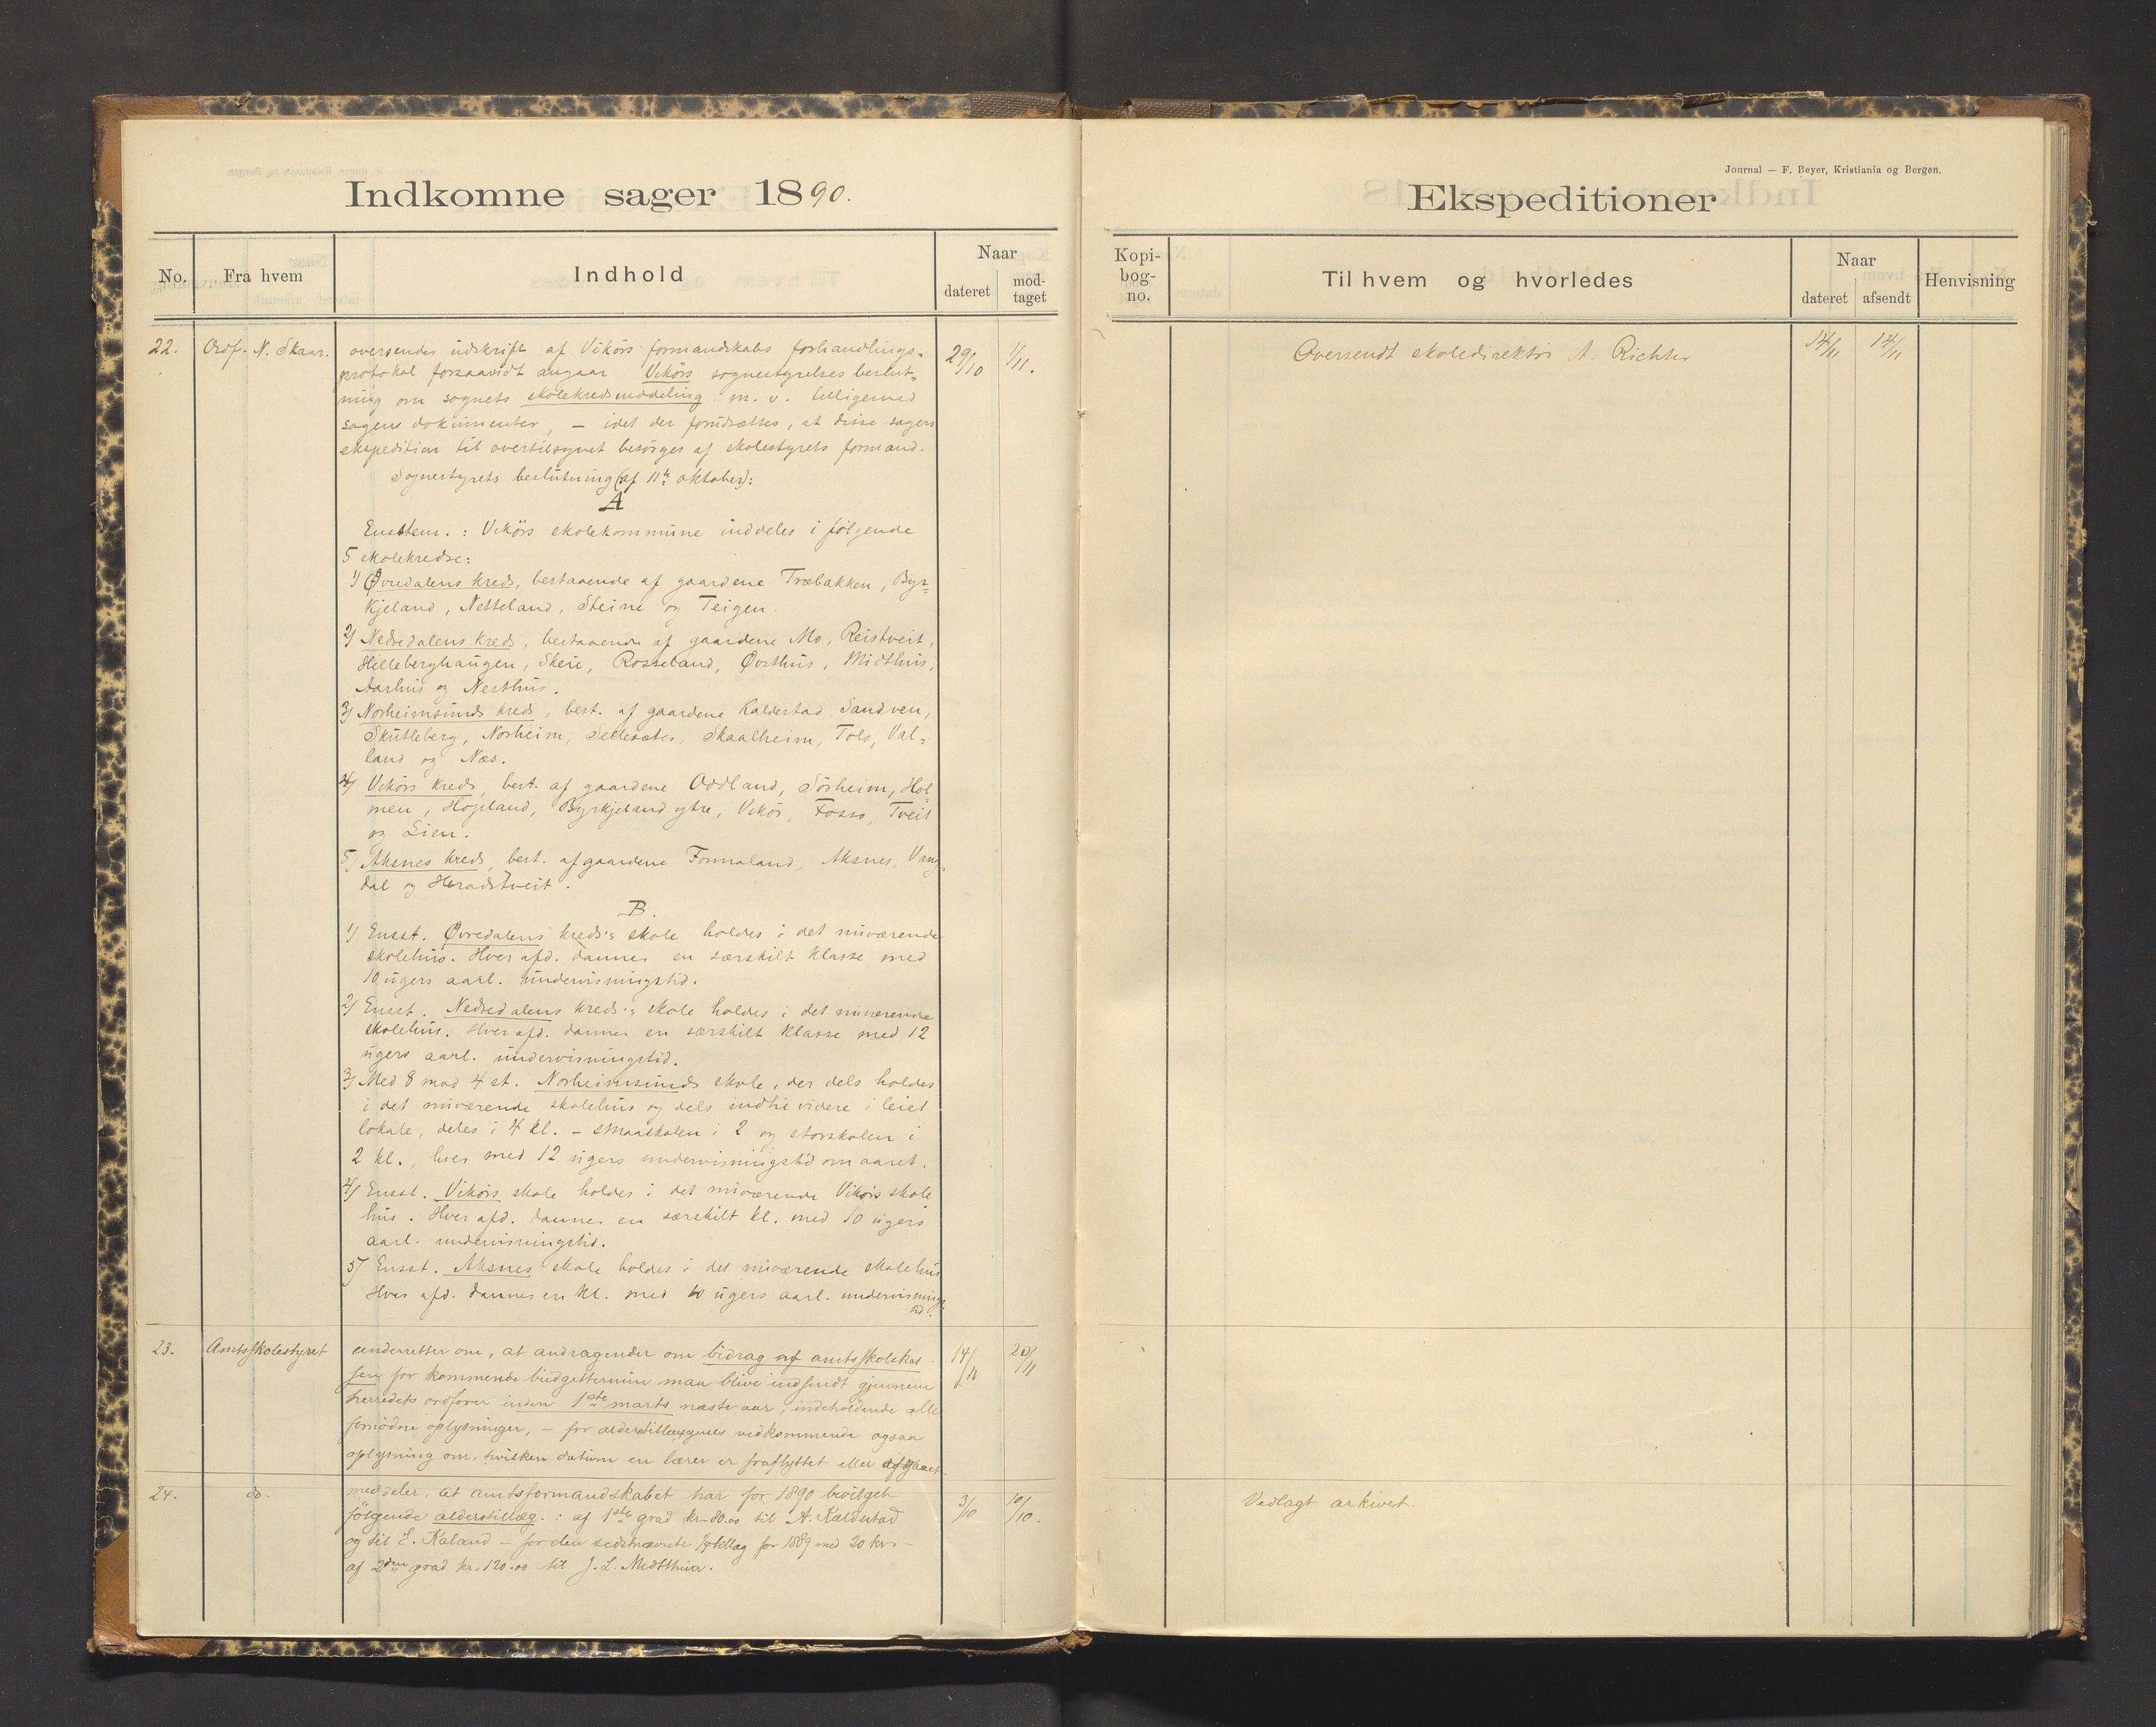 Indkomne sager 1890.
No.
Fra hvem
Indhold
Naar
dateret
mod-
taget
22.
Ordf. N. Skaar.
oversender udskrift af Vikørs formandskabs forhandlings-
protokol forsaavidt angaar Vikørs sognestyrelses beslut-
ning om sognets skolekredsinddeling m. v. tilligemed
sagens dokumenter, – idet der forudsættes, at disse sagers
ekspedition til overtilsynet besørges af skolestyrets formand.
Sognestyrets beslutning (af 11te oktober):
A
Enstem. : Vikørs skolekommune inddeles i følgende
5 skolekredse:
1) Øvredalens kreds, bestaaende af gaardene Træbakken, Byr-
kjeland, Netteland, Steine og Teigen.
2) Nedredalens kreds, bestaaende af gaardene Mo, Reistveit,
Hilleberghaugen, Skeie, Rosseland, Øvsthus, Midthus,
Aarhus og Nesthus.
3) Norheimsunds kreds, best. af gaardene Kaldestad, Sandven,
Skutleberg, Norheim, Sellesæter, Skaalheim, Tolo, Val-
land og Næs.
4) Vikørs kreds, best. af gaardene Oddland, Sørheim, Hol-
men, Hopland, Byrkjeland ytre, Vikør, Fosso, Tveit
og Lien.
5) Aksnes kreds, best. af gaardene Fonnaland, Aksnes, Vang-
dal og Heradstveit.
B.
1) Ensst. Øvredalens kreds's skole holdes i det nuværende
skolehus. Hver afd. danner en særskilt klasse med
10 ugers aarl. undervisningstid.
2) Ensst. Nedredalens kreds's skole holdes i det nuværende
skolehus. Hver afd. danner en særskilt klasse med 12
ugers aarl. undervisningstid.
3) Med 8 mod 4 st. Norheimsunds skole, der dels holdes
i det nuværende skolehus og dels indtil videre i leiet
lokale, deles i 4 kl. – smaaskolen i 2 og storskolen i
2 kl., hver med 12 ugers undervisningstid om aaret.
4) Ensst. Vikørs skole holdes i det nuværende Vikørs skole
hus. Hver afd. danner en særskilt kl. med 10 ugers
aarl. undervisningstid.
5) Ensst. Aksnes skole holdes i det nuværende skolehus
Hver afd. danner en kl. med 10 ugers aarl. undervisnings-
tid.
29/10
1/11.
23.
Amtsskolestyret
underretter om, at andragender om bidrag af amtsskolekas-
sen for kommende budgettermin maa blive indsendt gjennem
herredets ordfører inden 1ste marts næste aar, indeholdende alle
fornødne oplysninger, – for alderstillæggenes vedkommende ogsaa
oplysning om, hvilken datum en lærer er fraflyttet eller afgaaet.
14/11
20/11
24.
do.
meddeler, at amtsformandskabet har for 1890 bevilget
følgende alderstillæg. : af 1ste grad kr. 80.00 til A. Kaldestad
og til E. Kaland – for den sidstnævnte tillæg for 1889 med 20 kr. –
af 2den grad kr. 120.00 til J. L. Medthus.
3/10
10/10.
Journal — F. Beyer, Kristiania og Bergen.
Ekspeditioner
Kopi-
bog-
no.
Til hvem og hvorledes
Naar
dateret
afsendt
Henvisning
Oversendt skoledirektør A. Richter
14/11
14/11
Vedlagt arkivet.